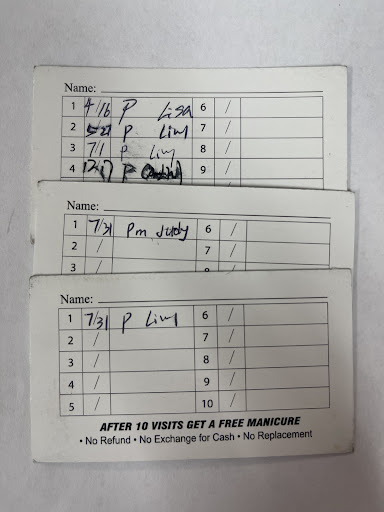 Name:
1 4/16 P Lisa 6 /
2 5/27 P Lily 7 /
3 7/1 P Lily 8 /
4 12/17 P 9 /
Name:
1 7/31 Pm Judy 6 /
2 / 7 /
3 /
Name:
1 7/31 P Lily 6 /
2 / 7 /
3 / 8 /
4 / 9 /
5 / 10 /
AFTER 10 VISITS GET A FREE MANICURE
• No Refund • No Exchange for Cash • No Replacement